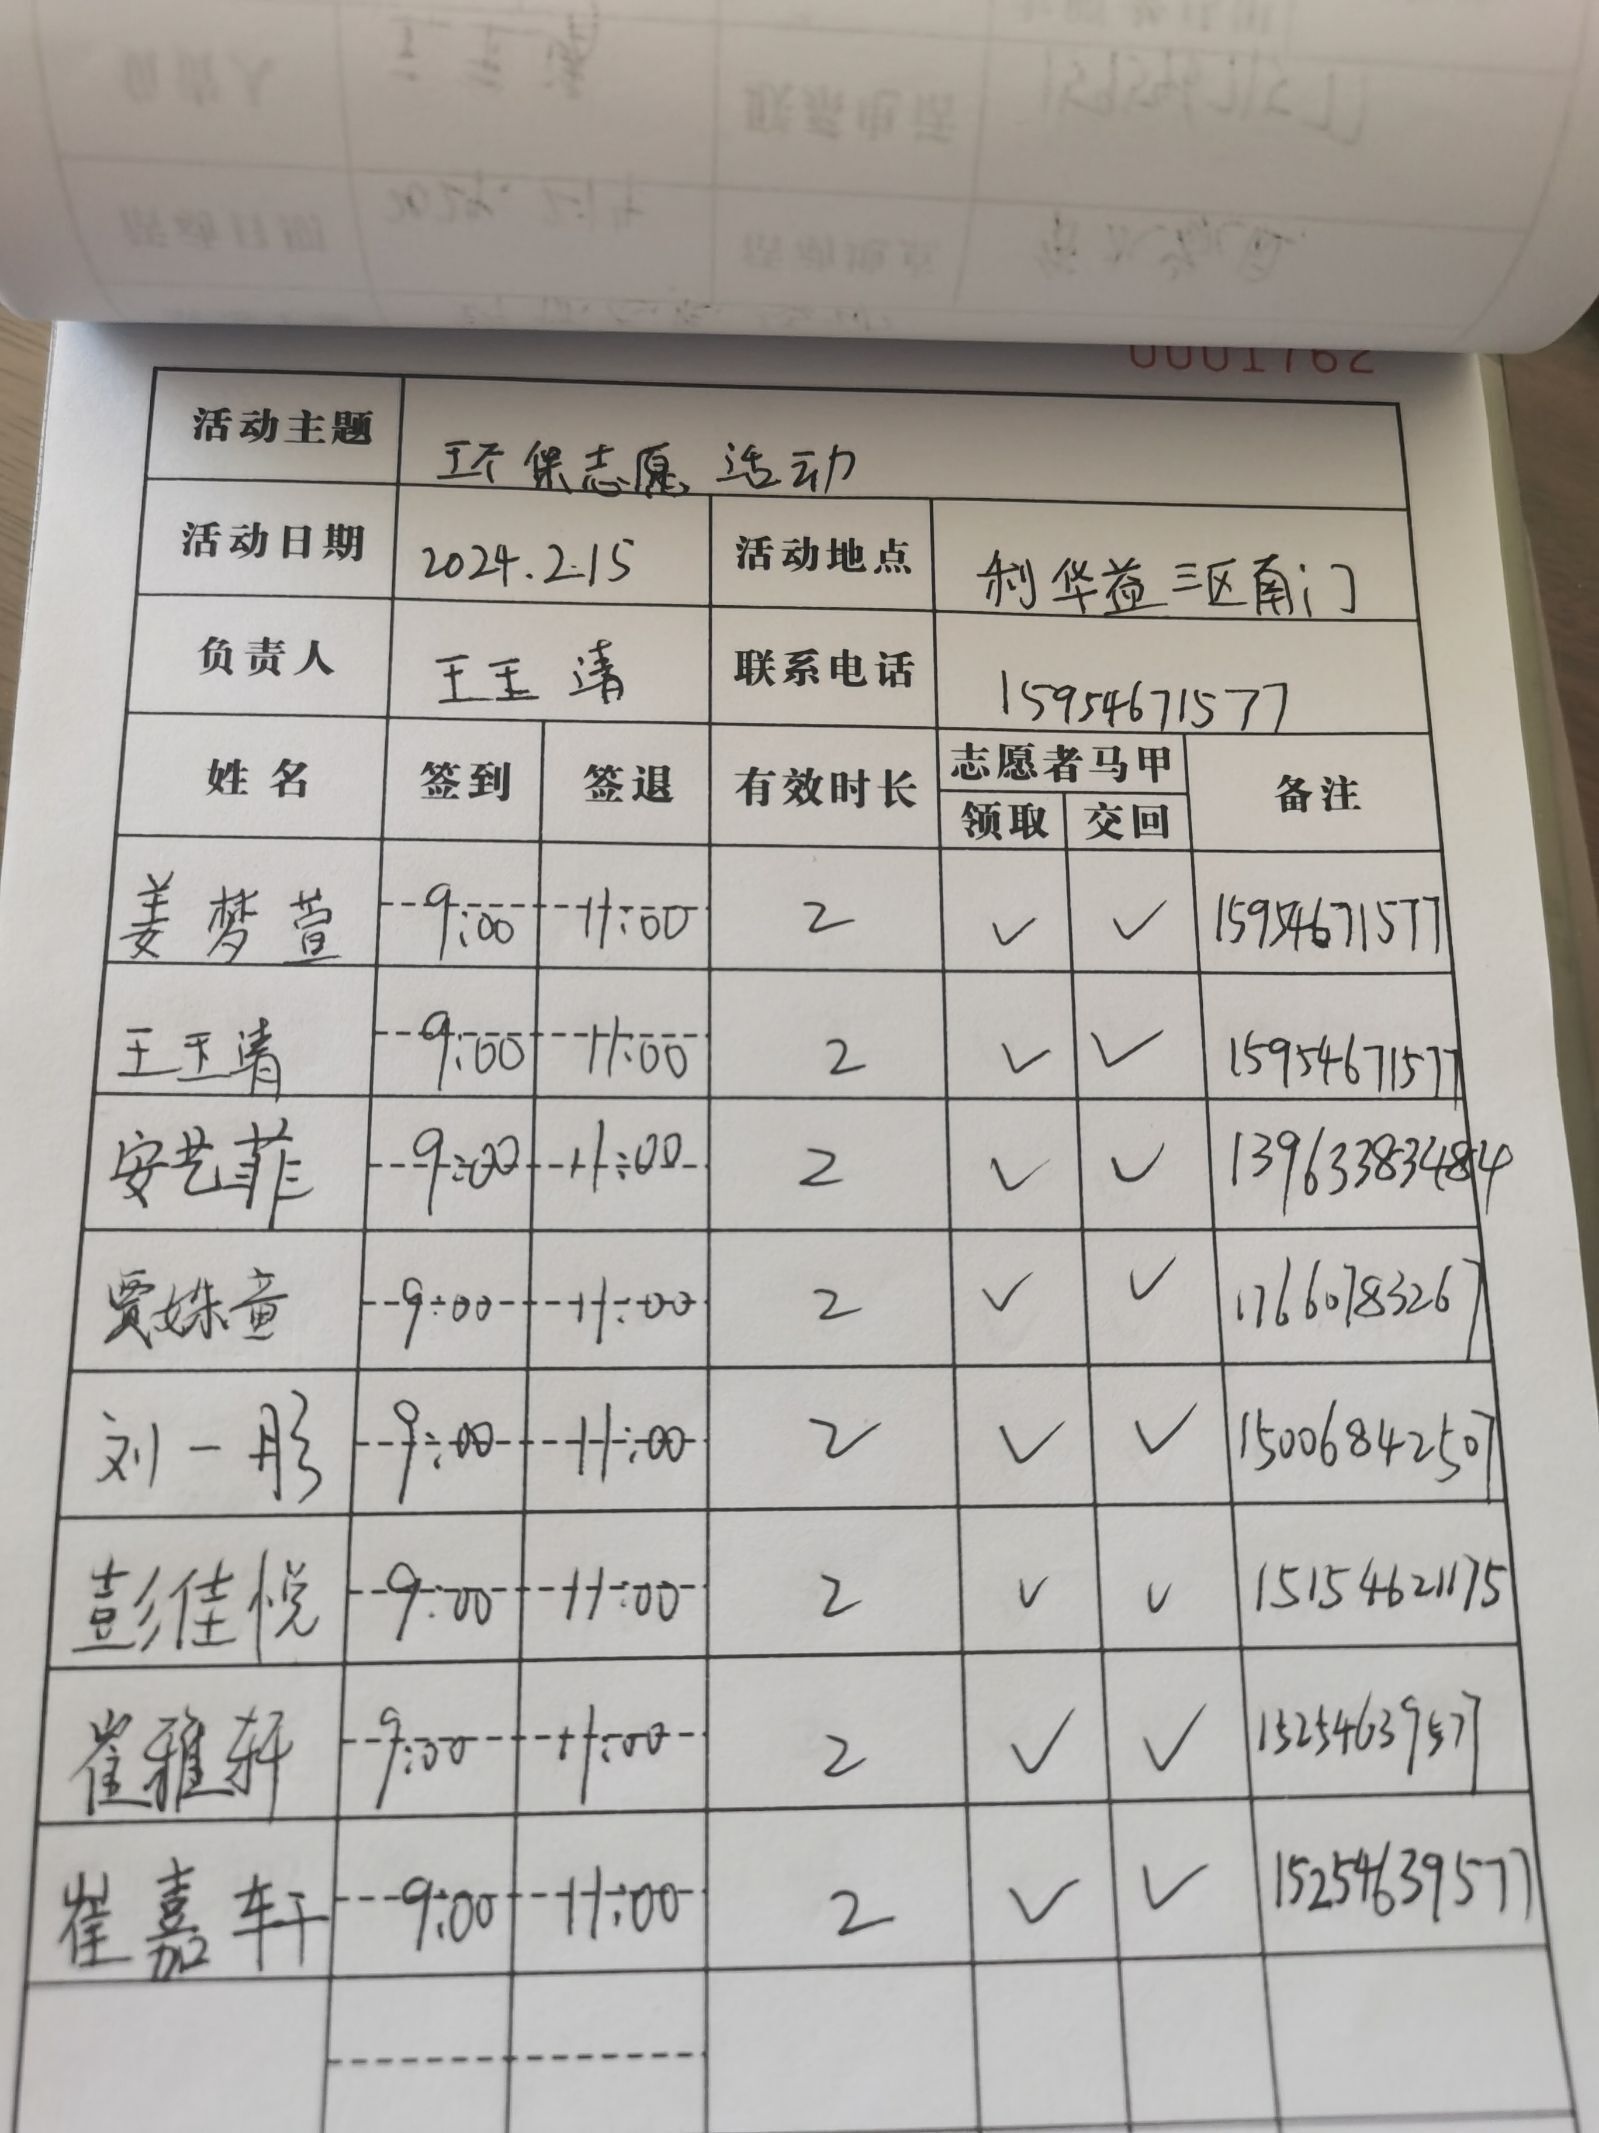 0001762
活动主题 环保志愿活动
活动日期 2024.2.15 活动地点 利华益三区南门
负责人 王玉清 联系电话 15954671577
姓名 签到 签退 有效时长 志愿者马甲 备注
领取 交回
姜梦萱 9:00 11:00 2 ✓ ✓ 15954671577
王玉清 9:00 11:00 2 ✓ ✓ 15954671577
安艺菲 9:00 11:00 2 ✓ ✓ 13963383484
贾姝童 9:00 11:00 2 ✓ ✓ 17660783267
刘一彤 9:00 11:00 2 ✓ ✓ 15006842507
彭佳悦 9:00 11:00 2 ✓ ✓ 15154621175
崔雅轩 9:00 11:00 2 ✓ ✓ 15254639577
崔嘉轩 9:00 11:00 2 ✓ ✓ 15254639577